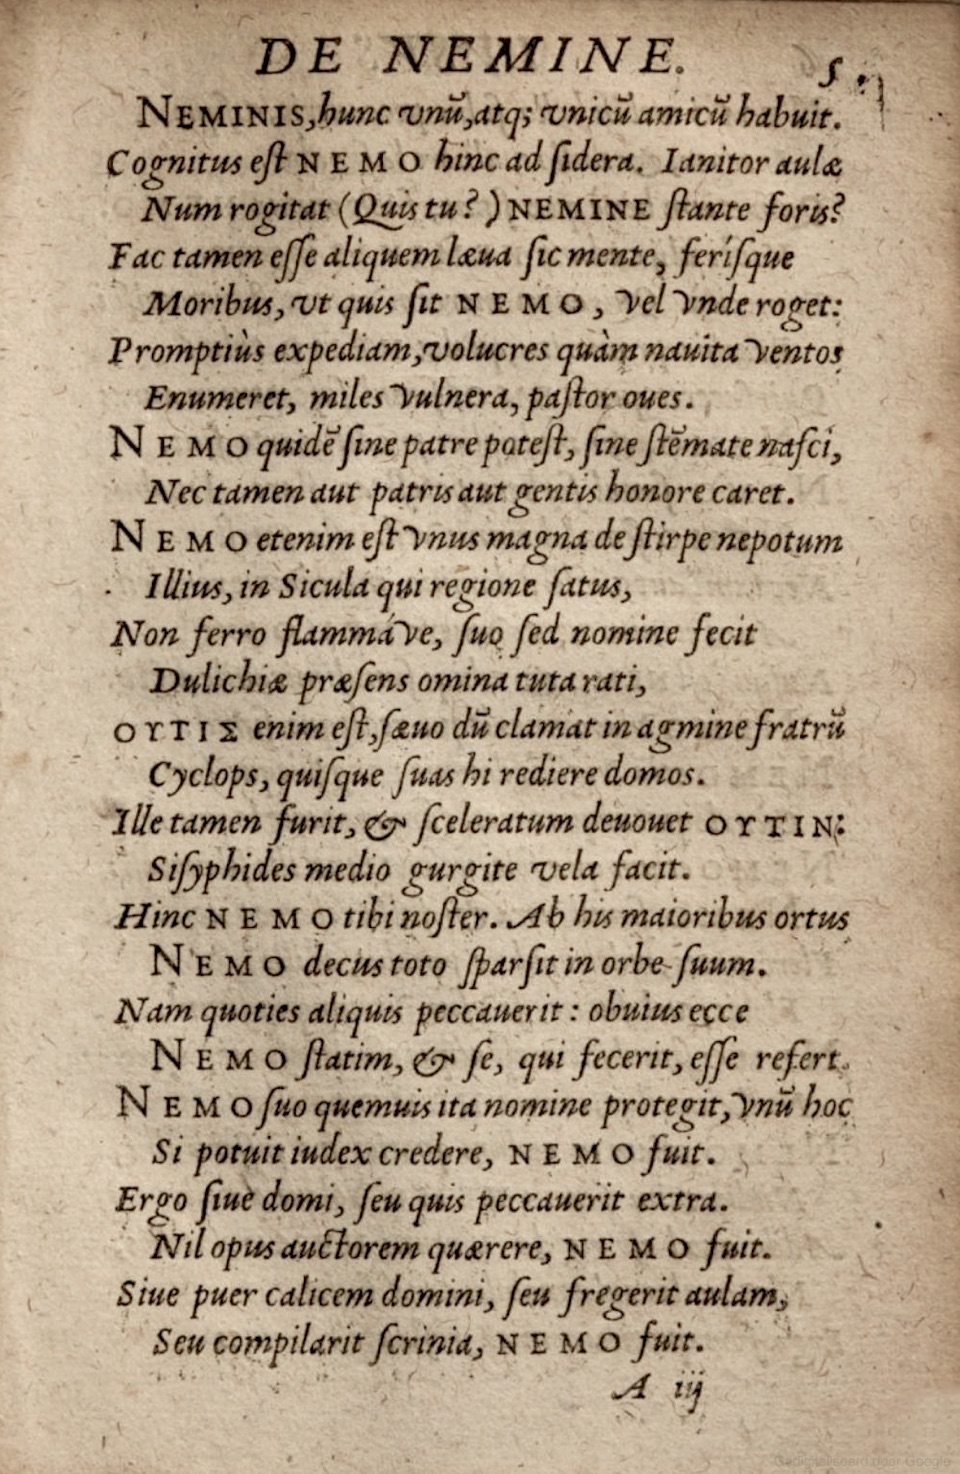 DE NEMINE. 5
NEMINIS, hunc vnū, atq; vnicū amicū habuit.
Cognitus eſt NEMO hinc ad ſidera. Ianitor aulæ
Num rogitat (Quis tu?) NEMINE ſtante foris?
Fac tamen eſſe aliquem læua ſic mente, feríſque
Moribus, vt quis ſit NEMO, vel vnde roget:
Promptiùs expediam, volucres quàm nauita ventos
Enumeret, miles vulnera, paſtor oues.
NEMO quidē ſine patre poteſt, ſine ſtēmate naſci,
Nec tamen aut patris aut gentis honore caret.
NEMO etenim eſt vnus magna de ſtirpe nepotum
Illius, in Sicula qui regione ſatus,
Non ferro flammáve, ſuo ſed nomine fecit
Dulichiæ præſens omina tuta rati,
ΟΥΤΙΣ enim eſt, ſæuo dū clamat in agmine fratrū
Cyclops, quiſque ſuas hi rediere domos.
Ille tamen furit, & ſceleratum deuouet ΟΥΤΙΝ:
Siſyphides medio gurgite vela facit.
Hinc NEMO tibi noſter. Ab his maioribus ortus
NEMO decus toto ſparſit in orbe ſuum.
Nam quoties aliquis peccauerit: obuius ecce
NEMO ſtatim, & ſe, qui fecerit, eſſe refert.
NEMO ſuo quemuis ita nomine protegit, vnū hoc
Si potuit iudex credere, NEMO fuit.
Ergo ſiue domi, ſeu quis peccauerit extra.
Nil opus auctorem quærere, NEMO fuit.
Siue puer calicem domini, ſeu fregerit aulam,
Seu compilarit ſcrinia, NEMO fuit.
A iij